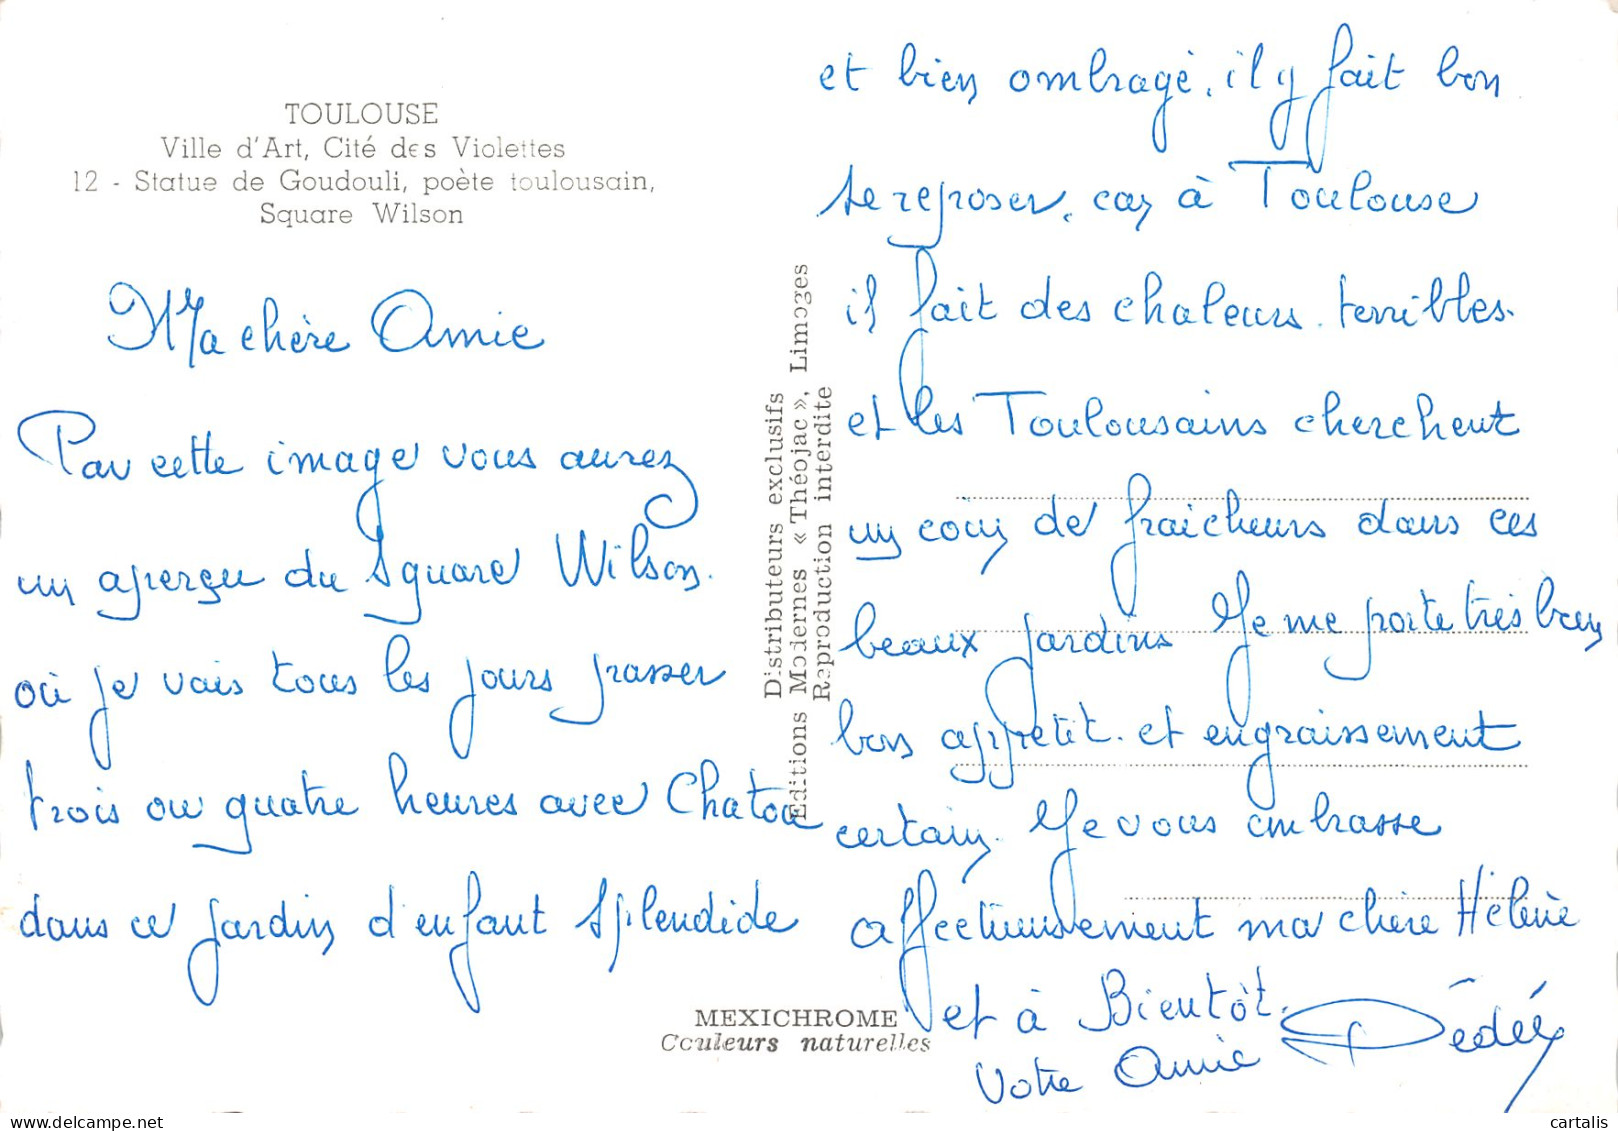 TOULOUSE
Ville d'Art, Cité des Violettes
12 - Statue de Goudouli, poète toulousain,
Square Wilson
Ma chère Amie
Par cette image vous aurez
un aperçu du Square Wilson.
où je vais tous les jours passer
trois ou quatre heures avec Chatou
dans ce jardin d'enfant splendide
Distributeurs exclusifs
Editions Modernes « Théojac », Limoges
Reproduction interdite
MEXICHROME
Couleurs naturelles
et bien ombragé, il y fait bon
se reposer, car à Toulouse
il fait des chaleurs terribles.
et les Toulousains cherchent
un coin de fraicheurs dans ces
beaux jardins Je me porte très bien
bon appetit. et engraissement
certain. Je vous embrasse
affectueusement ma chère Hélène
et à Bientôt.
Votre Amie Dédée
cartalis